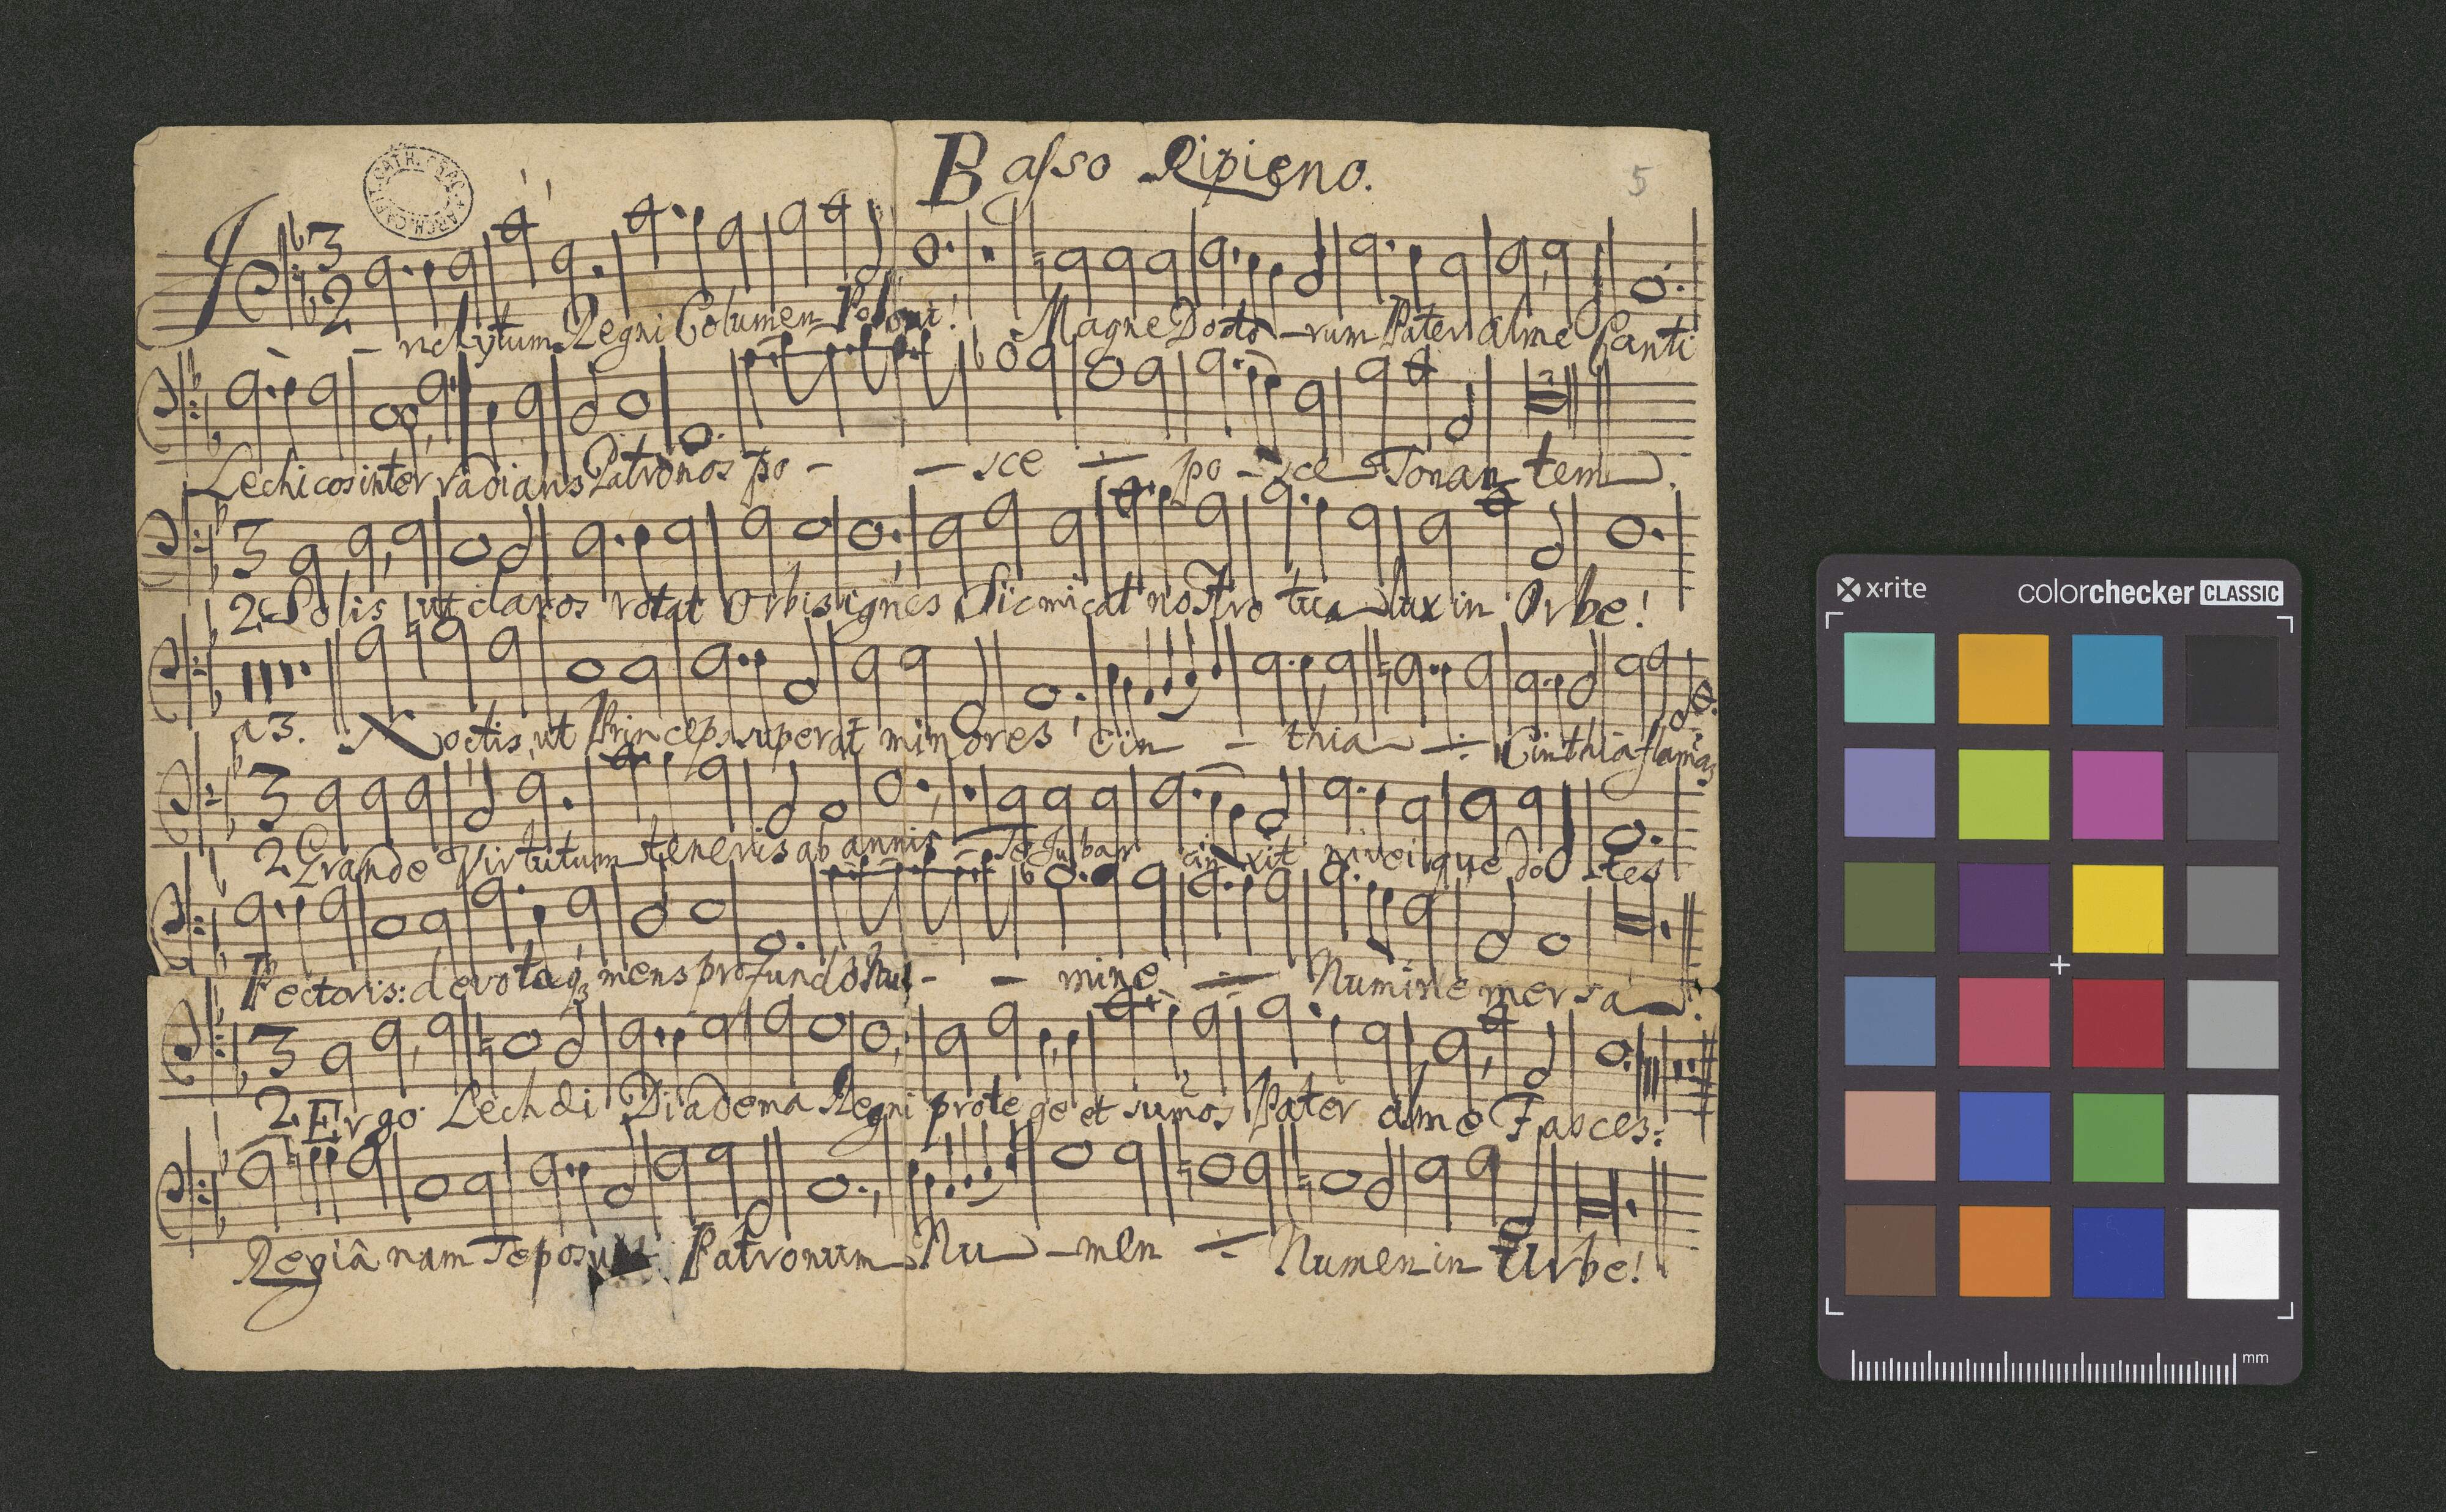 Basso Ripieno.
5
3
2
Inclytum Regni Columen Poloni! Magne Docto - rum Pater alme Canti
Lechicos inter radians Patronos po - - sce ÷ po - sce Tonan tem
3
2. Solis ut claros rotat Orbis ignes Sic micat nostro tua lux in Orbe!
a 3. Noctis, ut Princeps superat minores Cin - thia ÷ Cinthia flamas
3
2 Grande Virtutum teneris ab annis Te Jubar cin xit niveique do - tes
Pectoris: devotaq3 mens profundo Nu - - mine ÷ Numine mersa.
3
2. Ergo Lechdi Diadema Regni protege et sumos Pater alme Fasces:
Regiâ nam Te Patronum Nu - men ÷ Numen in Urbe!
x·rite
colorchecker CLASSIC
mm